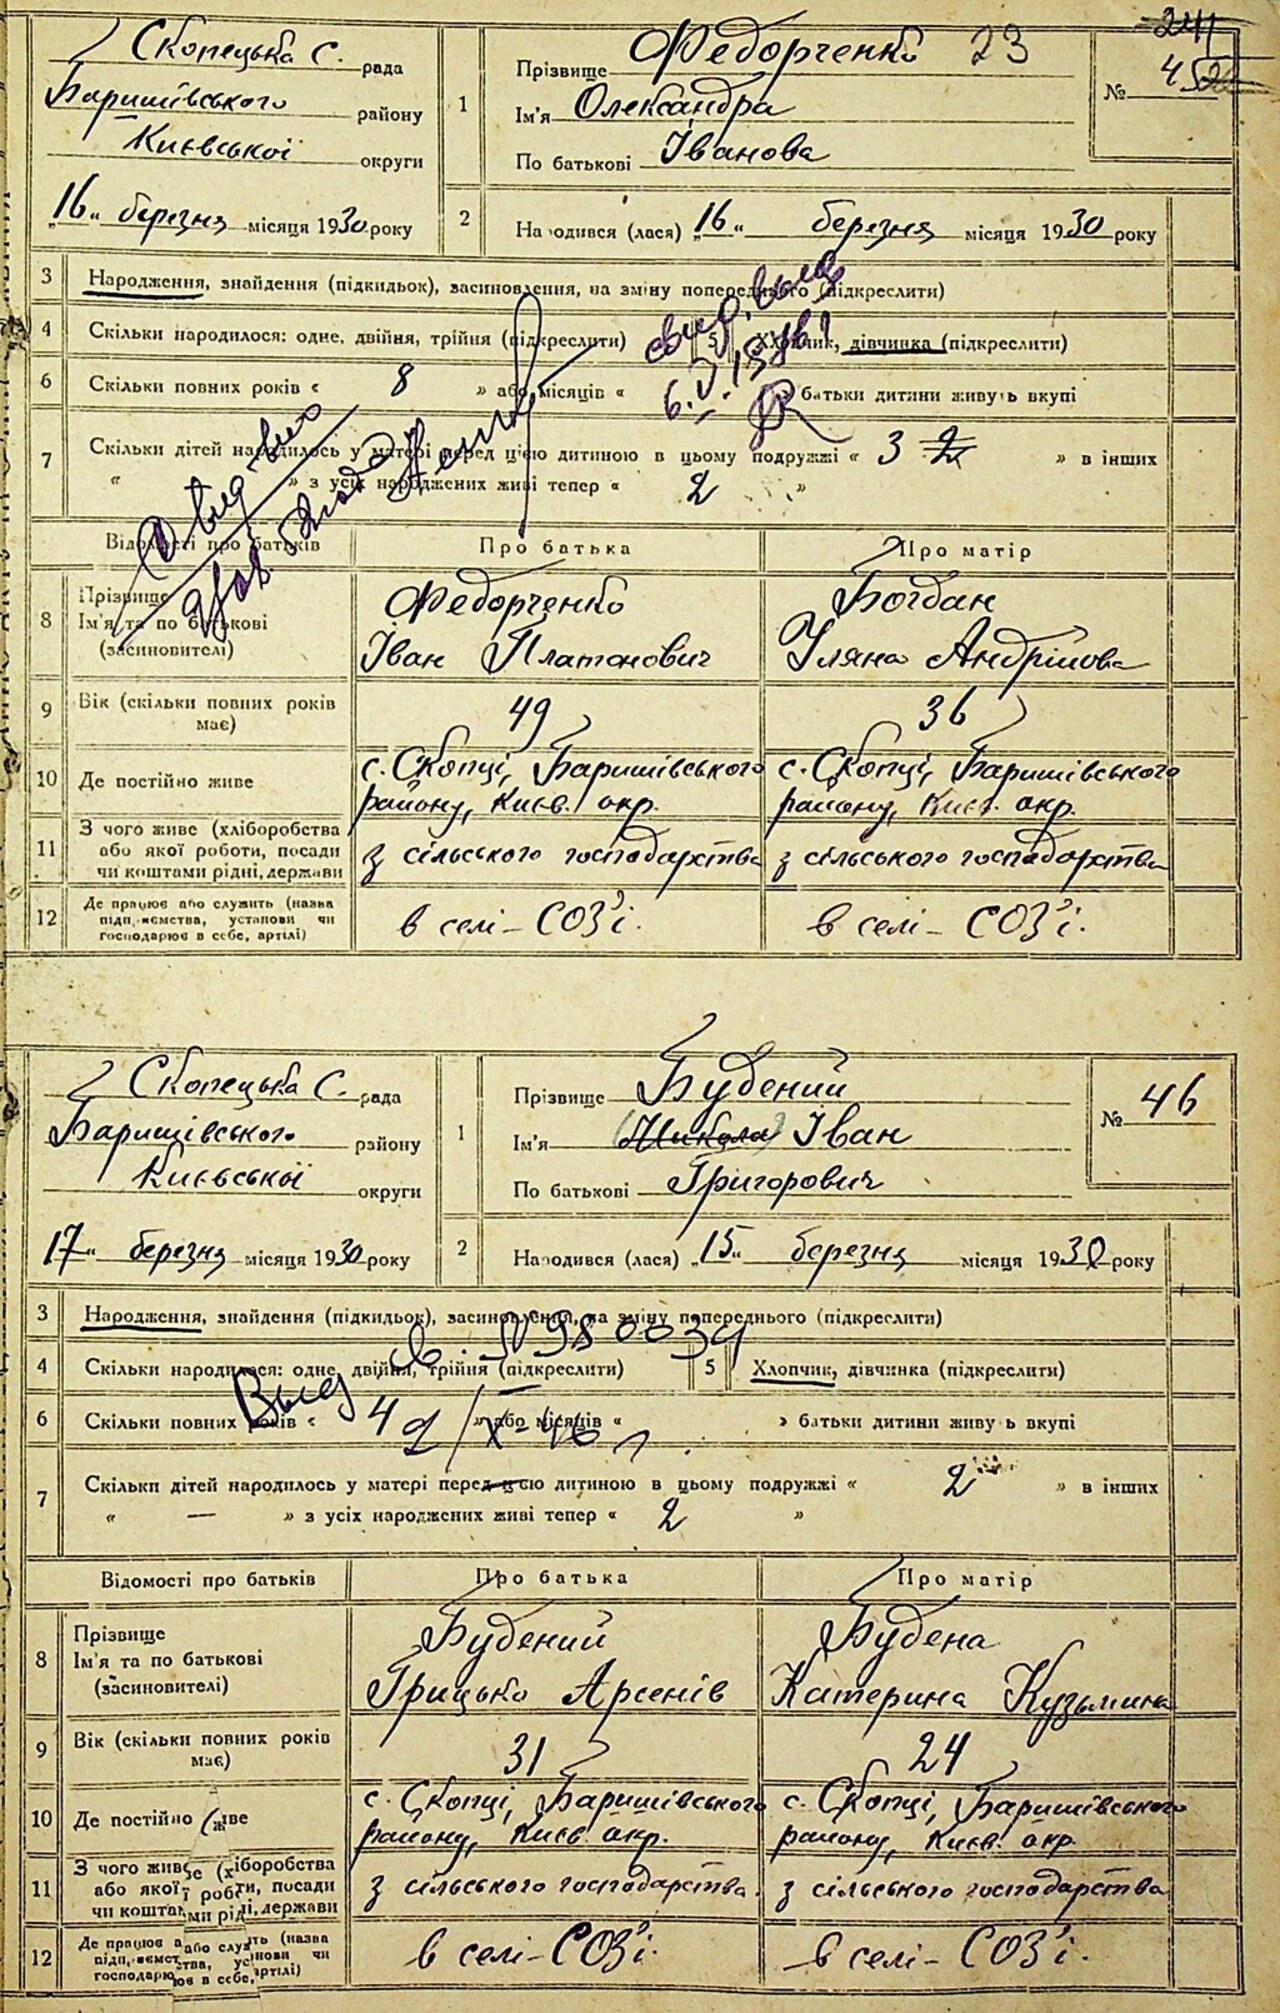 Скопецька С. рада
Баришівського району
Києвської округи
„16" березня місяця 1930 року
1 Прізвище Федорченко 23
Ім'я Олександра
По батькові Іванова
№ 45
2 Народився (лася) „16" березня місяця 1930 року
3 Народження, знайдення (підкидьок), засиновлення, на зміну попереднього (підкреслити)
4 Скільки народилося: одне, двійня, трійня (підкреслити) 5 Хлопчик, дівчинка (підкреслити)
6 Скільки повних років « 8 » або місяців « » батьки дитини живуть вкупі
7 Скільки дітей народилось у матері перед цією дитиною в цьому подружжі « 3 2 » в інших
« » з усіх народжених живі тепер « 2 »
Відомості про батьків Про батька Про матір
8 Прізвище Ім'я та по батькові (засиновителі)
Федорченко Іван Платонович
Богдан Уляна Андрійова
9 Вік (скільки повних років має) 49 36
10 Де постійно живе
с. Скопці, Баришівського району, Києв. окр.
с. Скопці, Баришівського району, Києв. окр.
11 З чого живе (хліборобства або якої роботи, посади чи коштами рідні, держави
з сільського господарства
з сільського господарства
12 Де працює або служить (назва підприємства, установи чи господарює в себе, артілі)
в селі - СОЗ'і.
в селі - СОЗ'і.
Скопецька С. рада
Баришівського району
Києвської округи
„17" березня місяця 1930 року
1 Прізвище Будений
Ім'я (Микола) Іван
По батькові Григорович
№ 46
2 Народився (лася) „15" березня місяця 1930 року
3 Народження, знайдення (підкидьок), засиновлення, на зміну попереднього (підкреслити)
4 Скільки народилося: одне, двійня, трійня (підкреслити) 5 Хлопчик, дівчинка (підкреслити)
6 Скільки повних років « 4 » або місяців « » батьки дитини живуть вкупі
7 Скільки дітей народилось у матері перед цією дитиною в цьому подружжі « 2 » в інших
« — » з усіх народжених живі тепер « 2 »
Відомості про батьків Про батька Про матір
8 Прізвище Ім'я та по батькові (засиновителі)
Будений Грицько Арсенів
Будена Катерина Кузьмина
9 Вік (скільки повних років має) 31 24
10 Де постійно живе
с. Скопці, Баришівського району, Києв. окр.
с. Скопці, Баришівського району, Києв. окр.
11 З чого живе (хліборобства або якої роботи, посади чи коштами рідні, держави
з сільського господарства.
з сільського господарства
12 Де працює або служить (назва підприємства, установи чи господарює в себе, артілі)
в селі - СОЗ'і.
в селі - СОЗ'і.